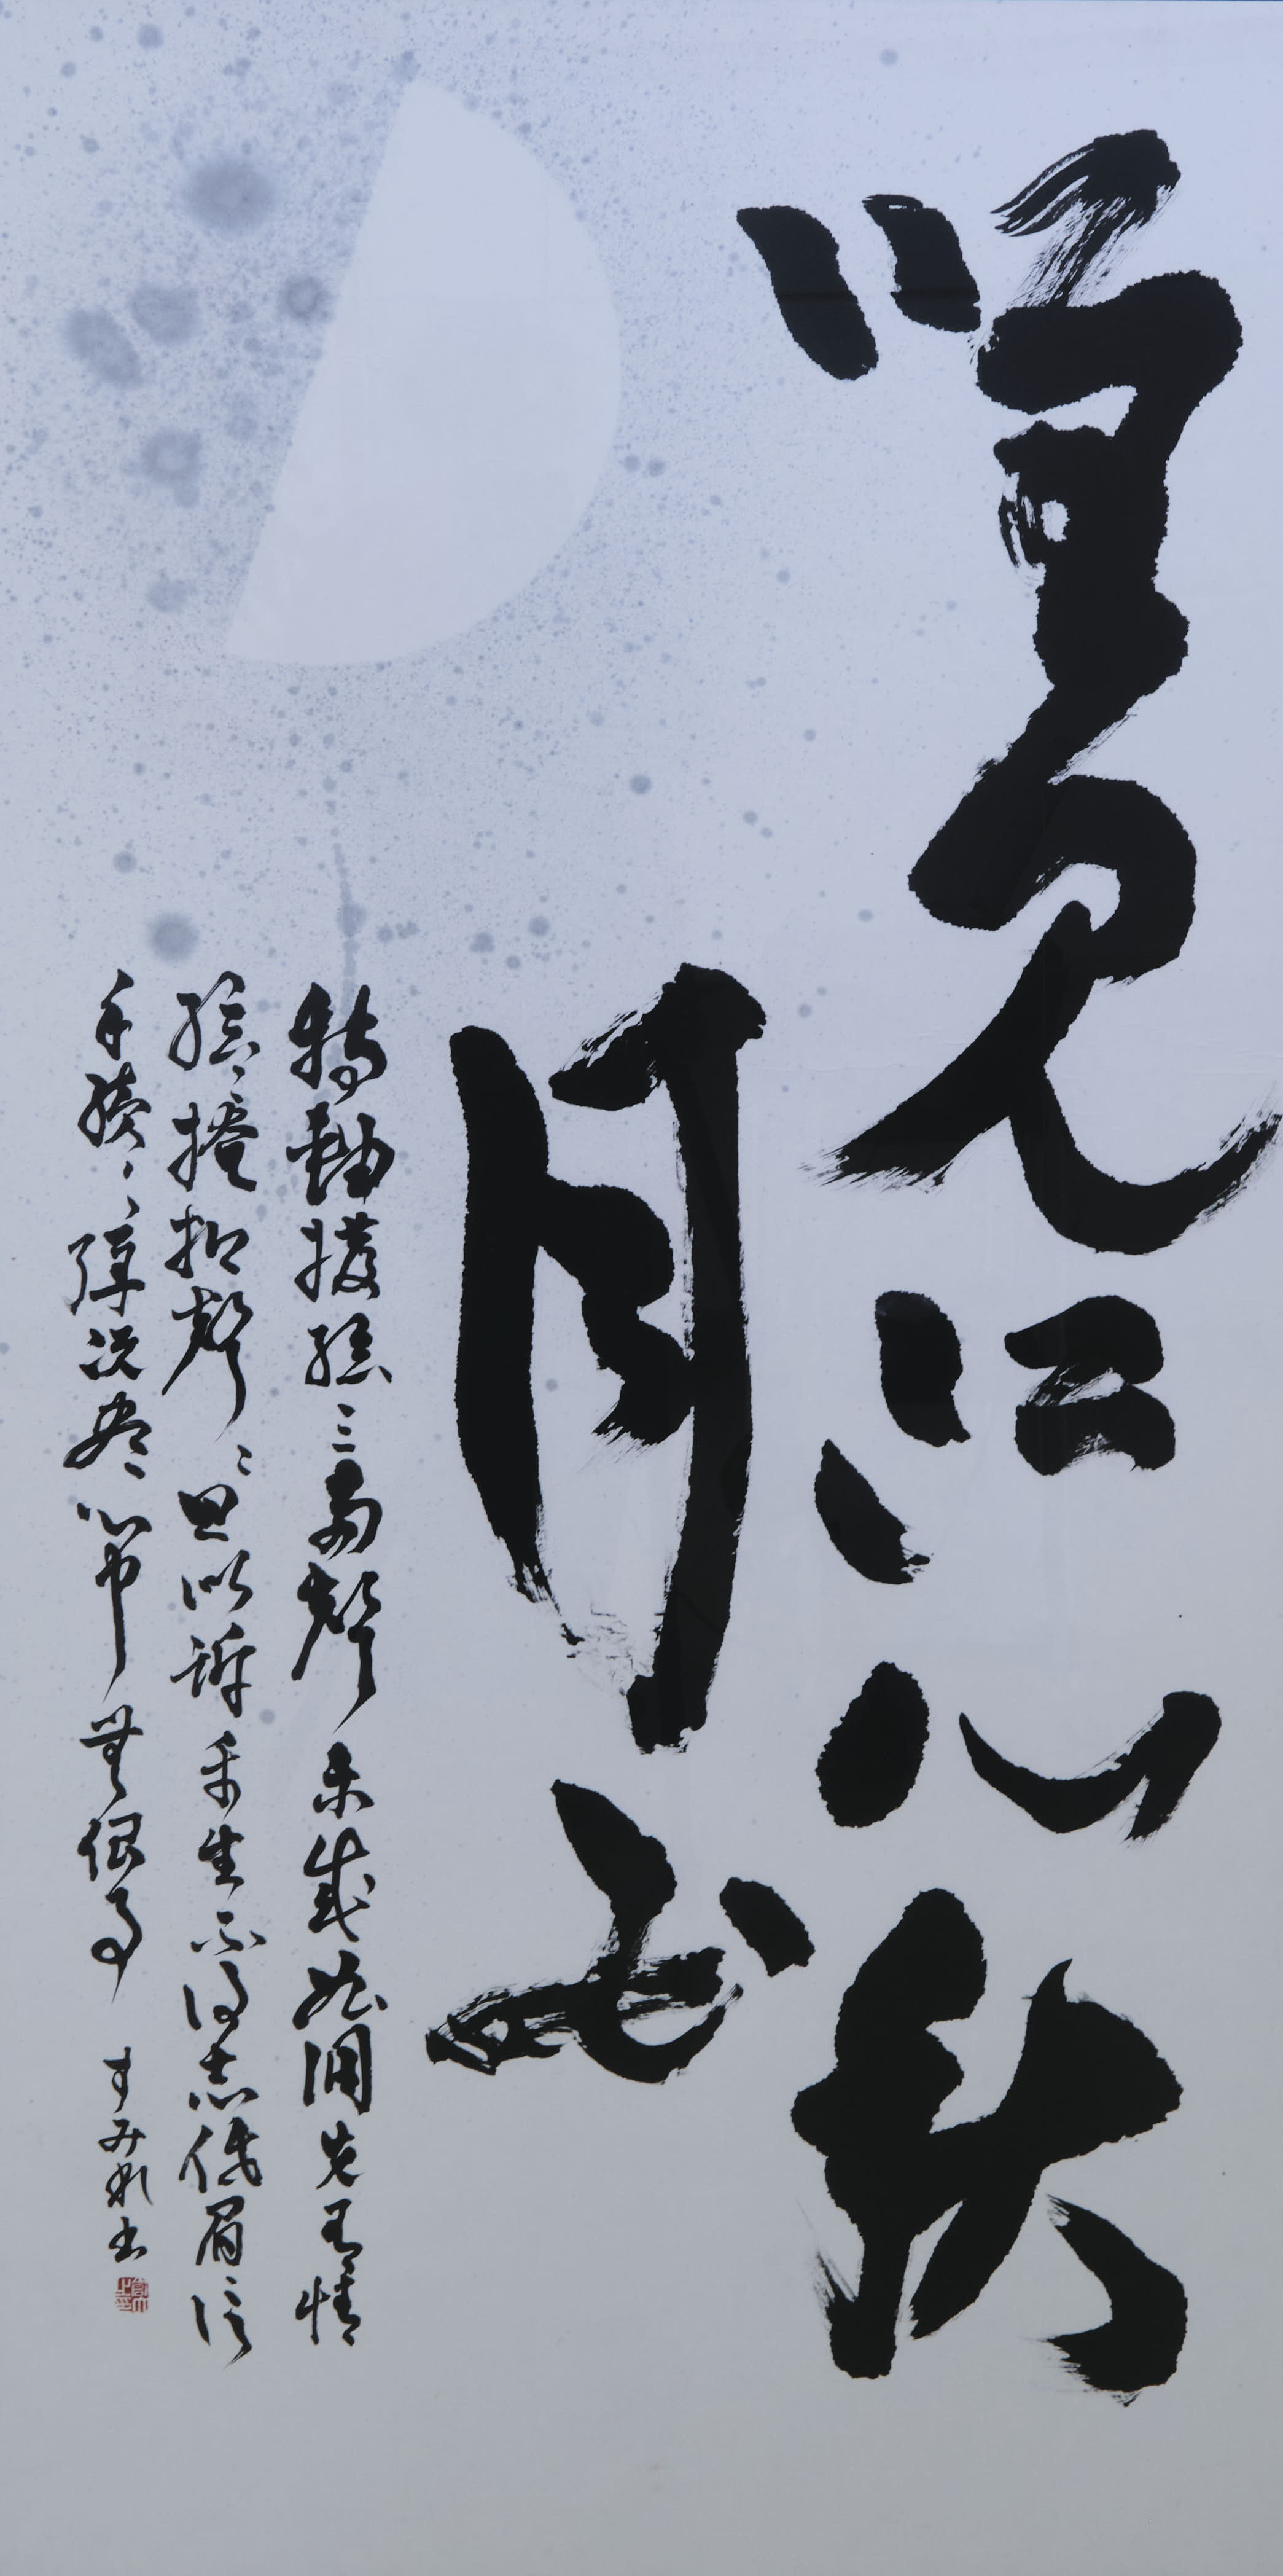 唯見江心秋
月白
轉軸撥絃三両聲未成曲調先有情
絃〻掩抑聲〻思似訴平生不得志低眉信
手續〻弾説盡心中無限事 すみれ書